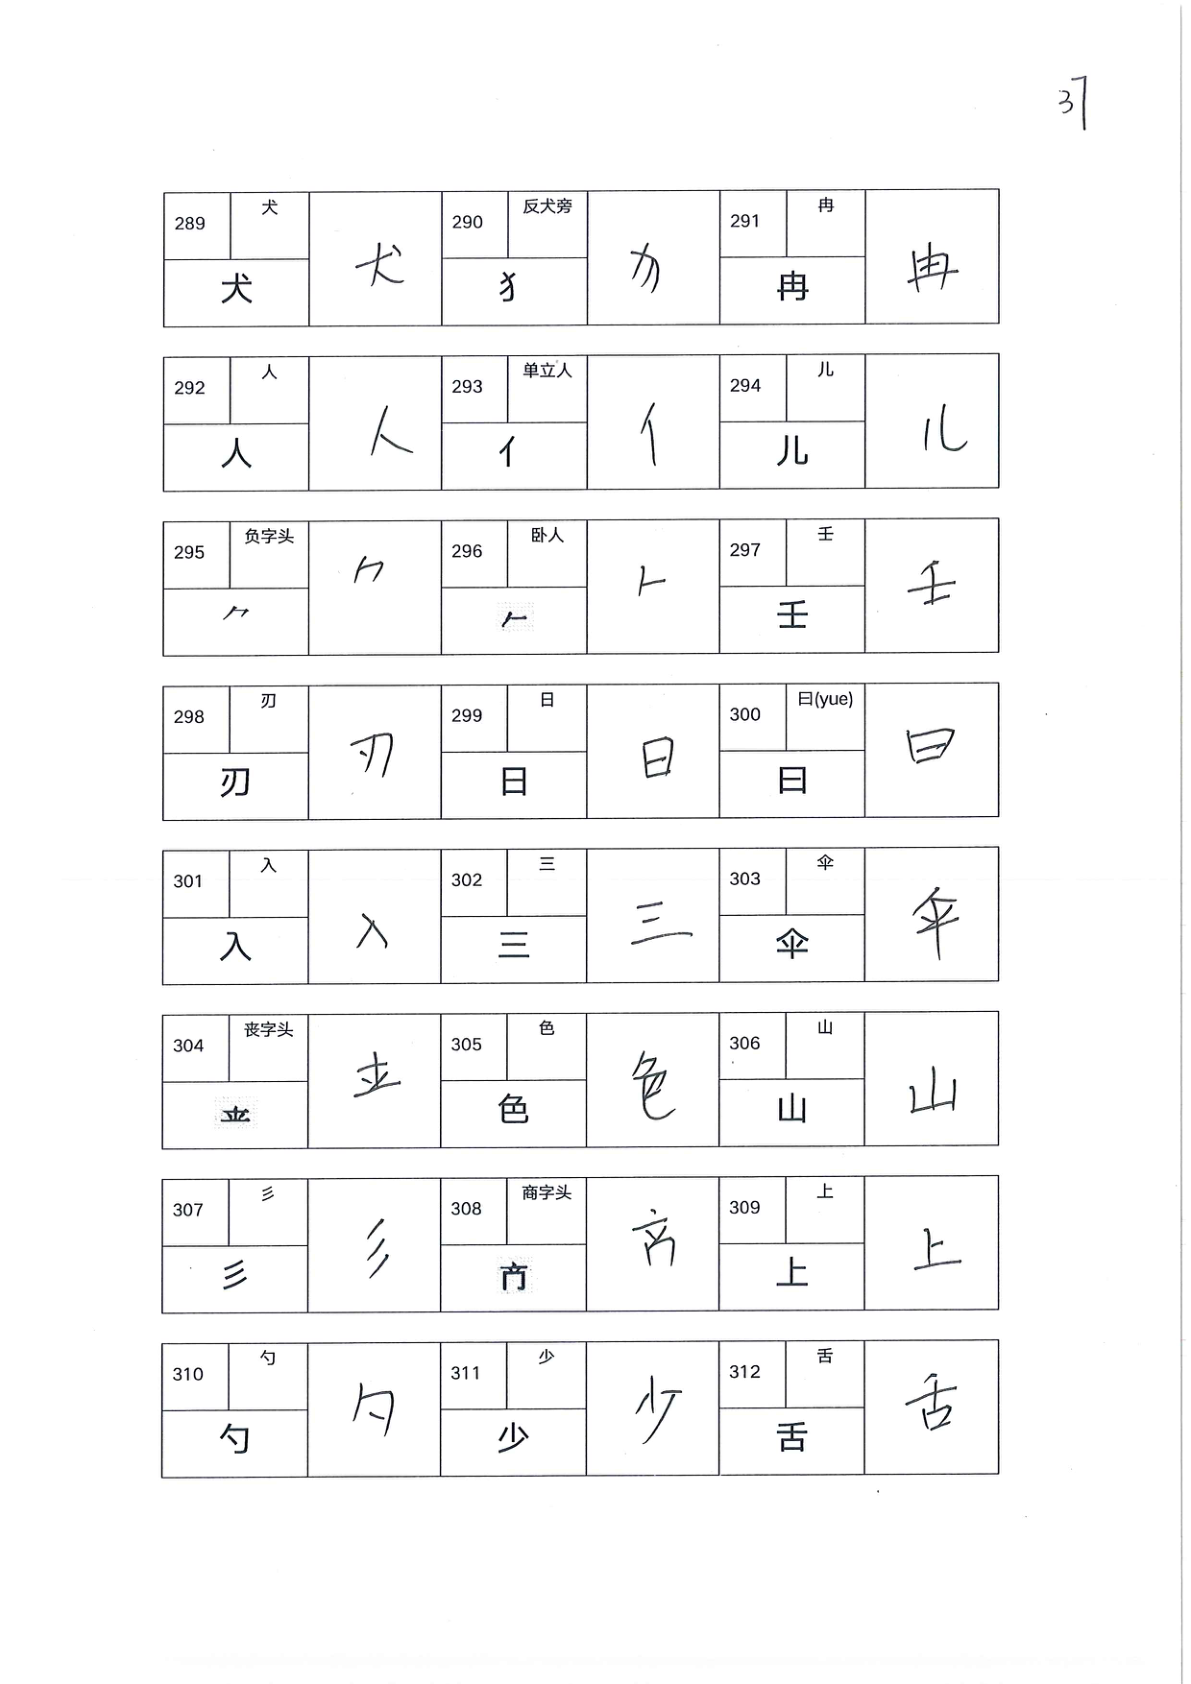 37
289 犬 犬 犬 290 反犬旁 犭 犭 291 冉 冉 冉
292 人 人 人 293 单立人 亻 亻 294 儿 儿 儿
295 负字头 ⺈ ⺈ 296 卧人 𠂉 297 壬 壬 壬
298 刃 刃 刃 299 日 日 日 300 曰(yue) 曰 曰
301 入 入 入 302 三 三 三 303 伞 伞 伞
304 丧字头 305 色 色 色 306 山 山 山
307 彡 彡 彡 308 商字头 309 上 上 上
310 勺 勺 勺 311 少 少 少 312 舌 舌 舌